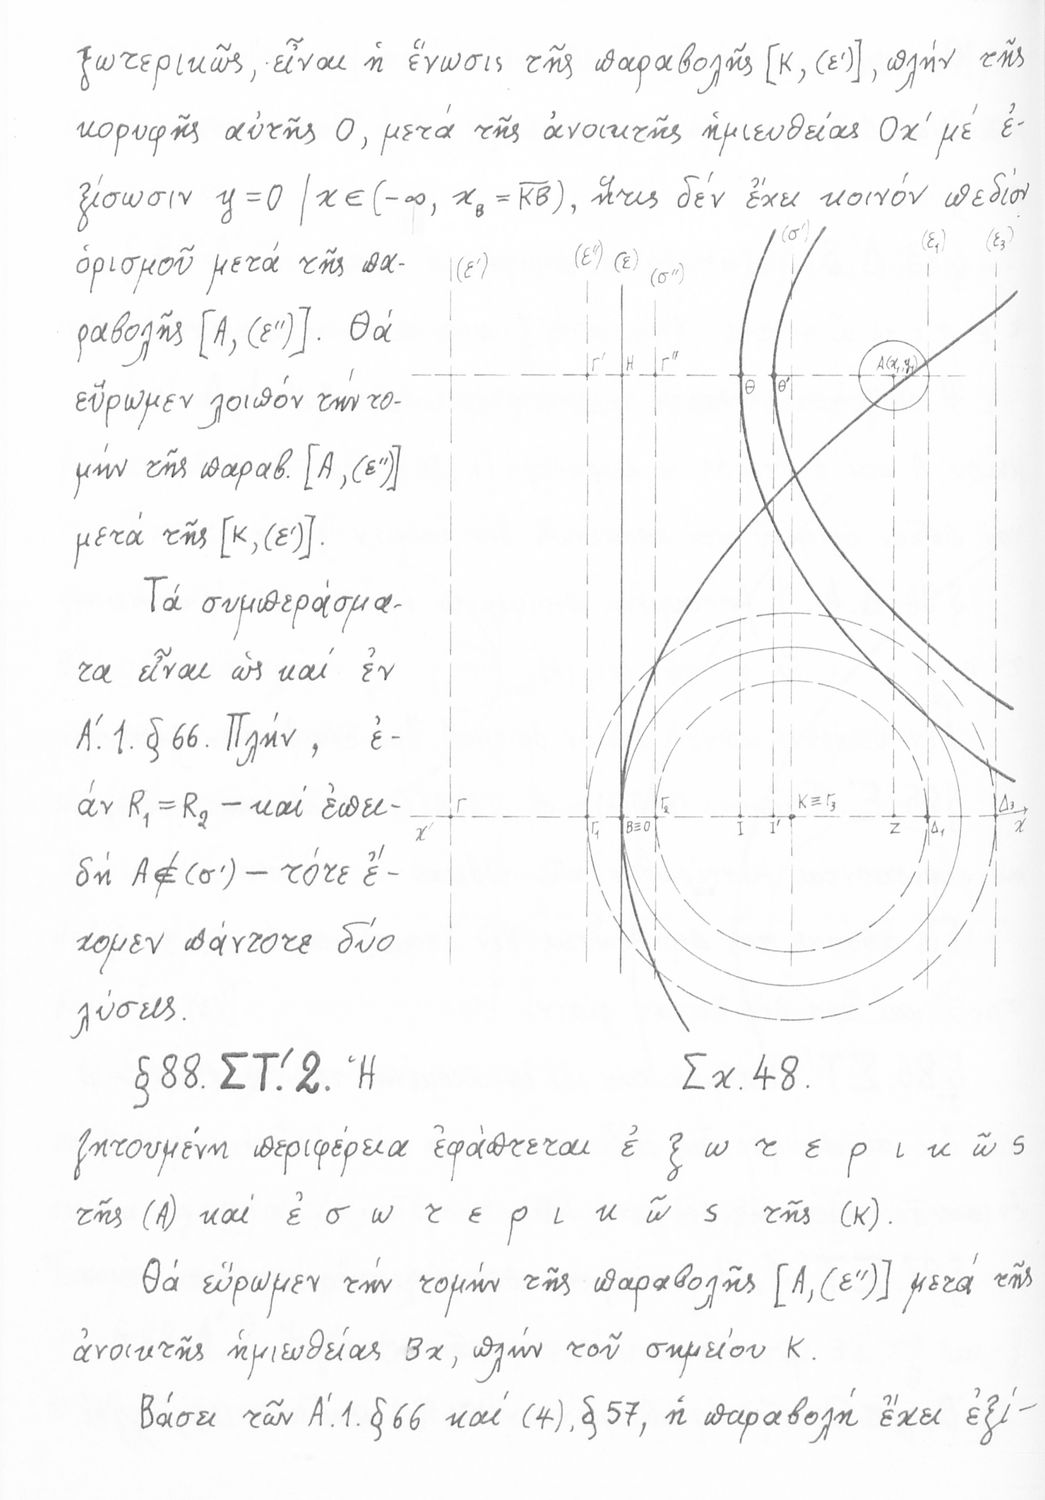 ξωτερικῶς, εἶναι ἡ ἕνωσις τῆς παραβολῆς [Κ, (ε′)], πλήν τῆς
κορυφῆς αὐτῆς Ο, μετά τῆς ἀνοικτῆς ἡμιευθείας Οx′ μέ ἐ-
ξίσωσιν y = 0 / x ∈ (-∞, x_B = K̅B̅), ἥτις δέν ἔχει κοινόν πεδίον
ὁρισμοῦ μετά τῆς πα-
ραβολῆς [Α, (ε″)]. Θά
εὕρωμεν λοιπόν τήν το-
μήν τῆς παραβ. [Α, (ε″)]
μετά τῆς [Κ, (ε′)].
Τά συμπεράσμα-
τα εἶναι ὡς καί ἐν
Α′.1. § 66. Πλήν, ἐ-
άν R₁ = R₂ – καί ἐπει-
δή Α ∉ (σ′) – τότε ἔ-
χομεν πάντοτε δύο
λύσεις.
(ε′)
(ε″)
(ε)
(σ″)
(σ′)
(ε₁)
(ε₃)
Γ′
Η
Γ″
Θ
Θ′
Α(x₁,y₁)
Γ
x′
Γ₁
Β≡Ο
Γ₂
Ι
Ι′
Κ≡Γ₃
Ζ
Δ₁
Δ₃
x
Σχ. 48.
§ 88. ΣΤ′. 2. Ἡ
ζητουμένη περιφέρεια ἐφάπτεται ἐ ξ ω τ ε ρ ι κ ῶ ς
τῆς (Α) καί ἐ σ ω τ ε ρ ι κ ῶ ς τῆς (Κ).
Θά εὕρωμεν τήν τομήν τῆς παραβολῆς [Α, (ε″)] μετά τῆς
ἀνοικτῆς ἡμιευθείας Βx, πλήν τοῦ σημείου Κ.
Βάσει τῶν Α′.1. § 66 καί (4), § 57, ἡ παραβολή ἔχει ἐξί-